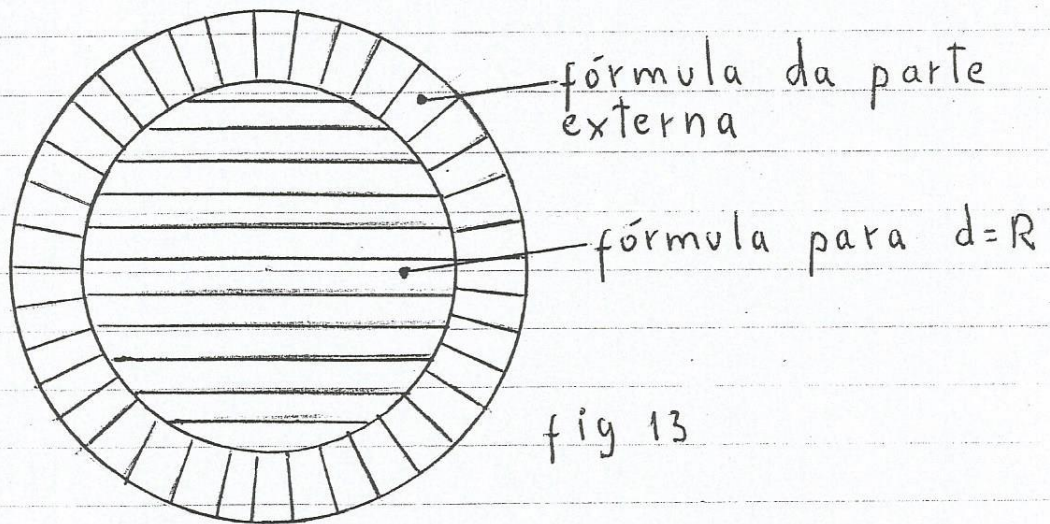 fórmula da parte
externa
fórmula para d=R
fig 13